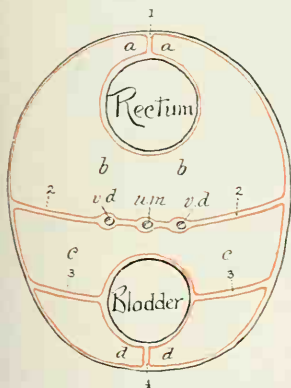 1
a a
Rectum
b b
2 2
v.d u.m v.d
c c
3 3
Bladder
d d
4